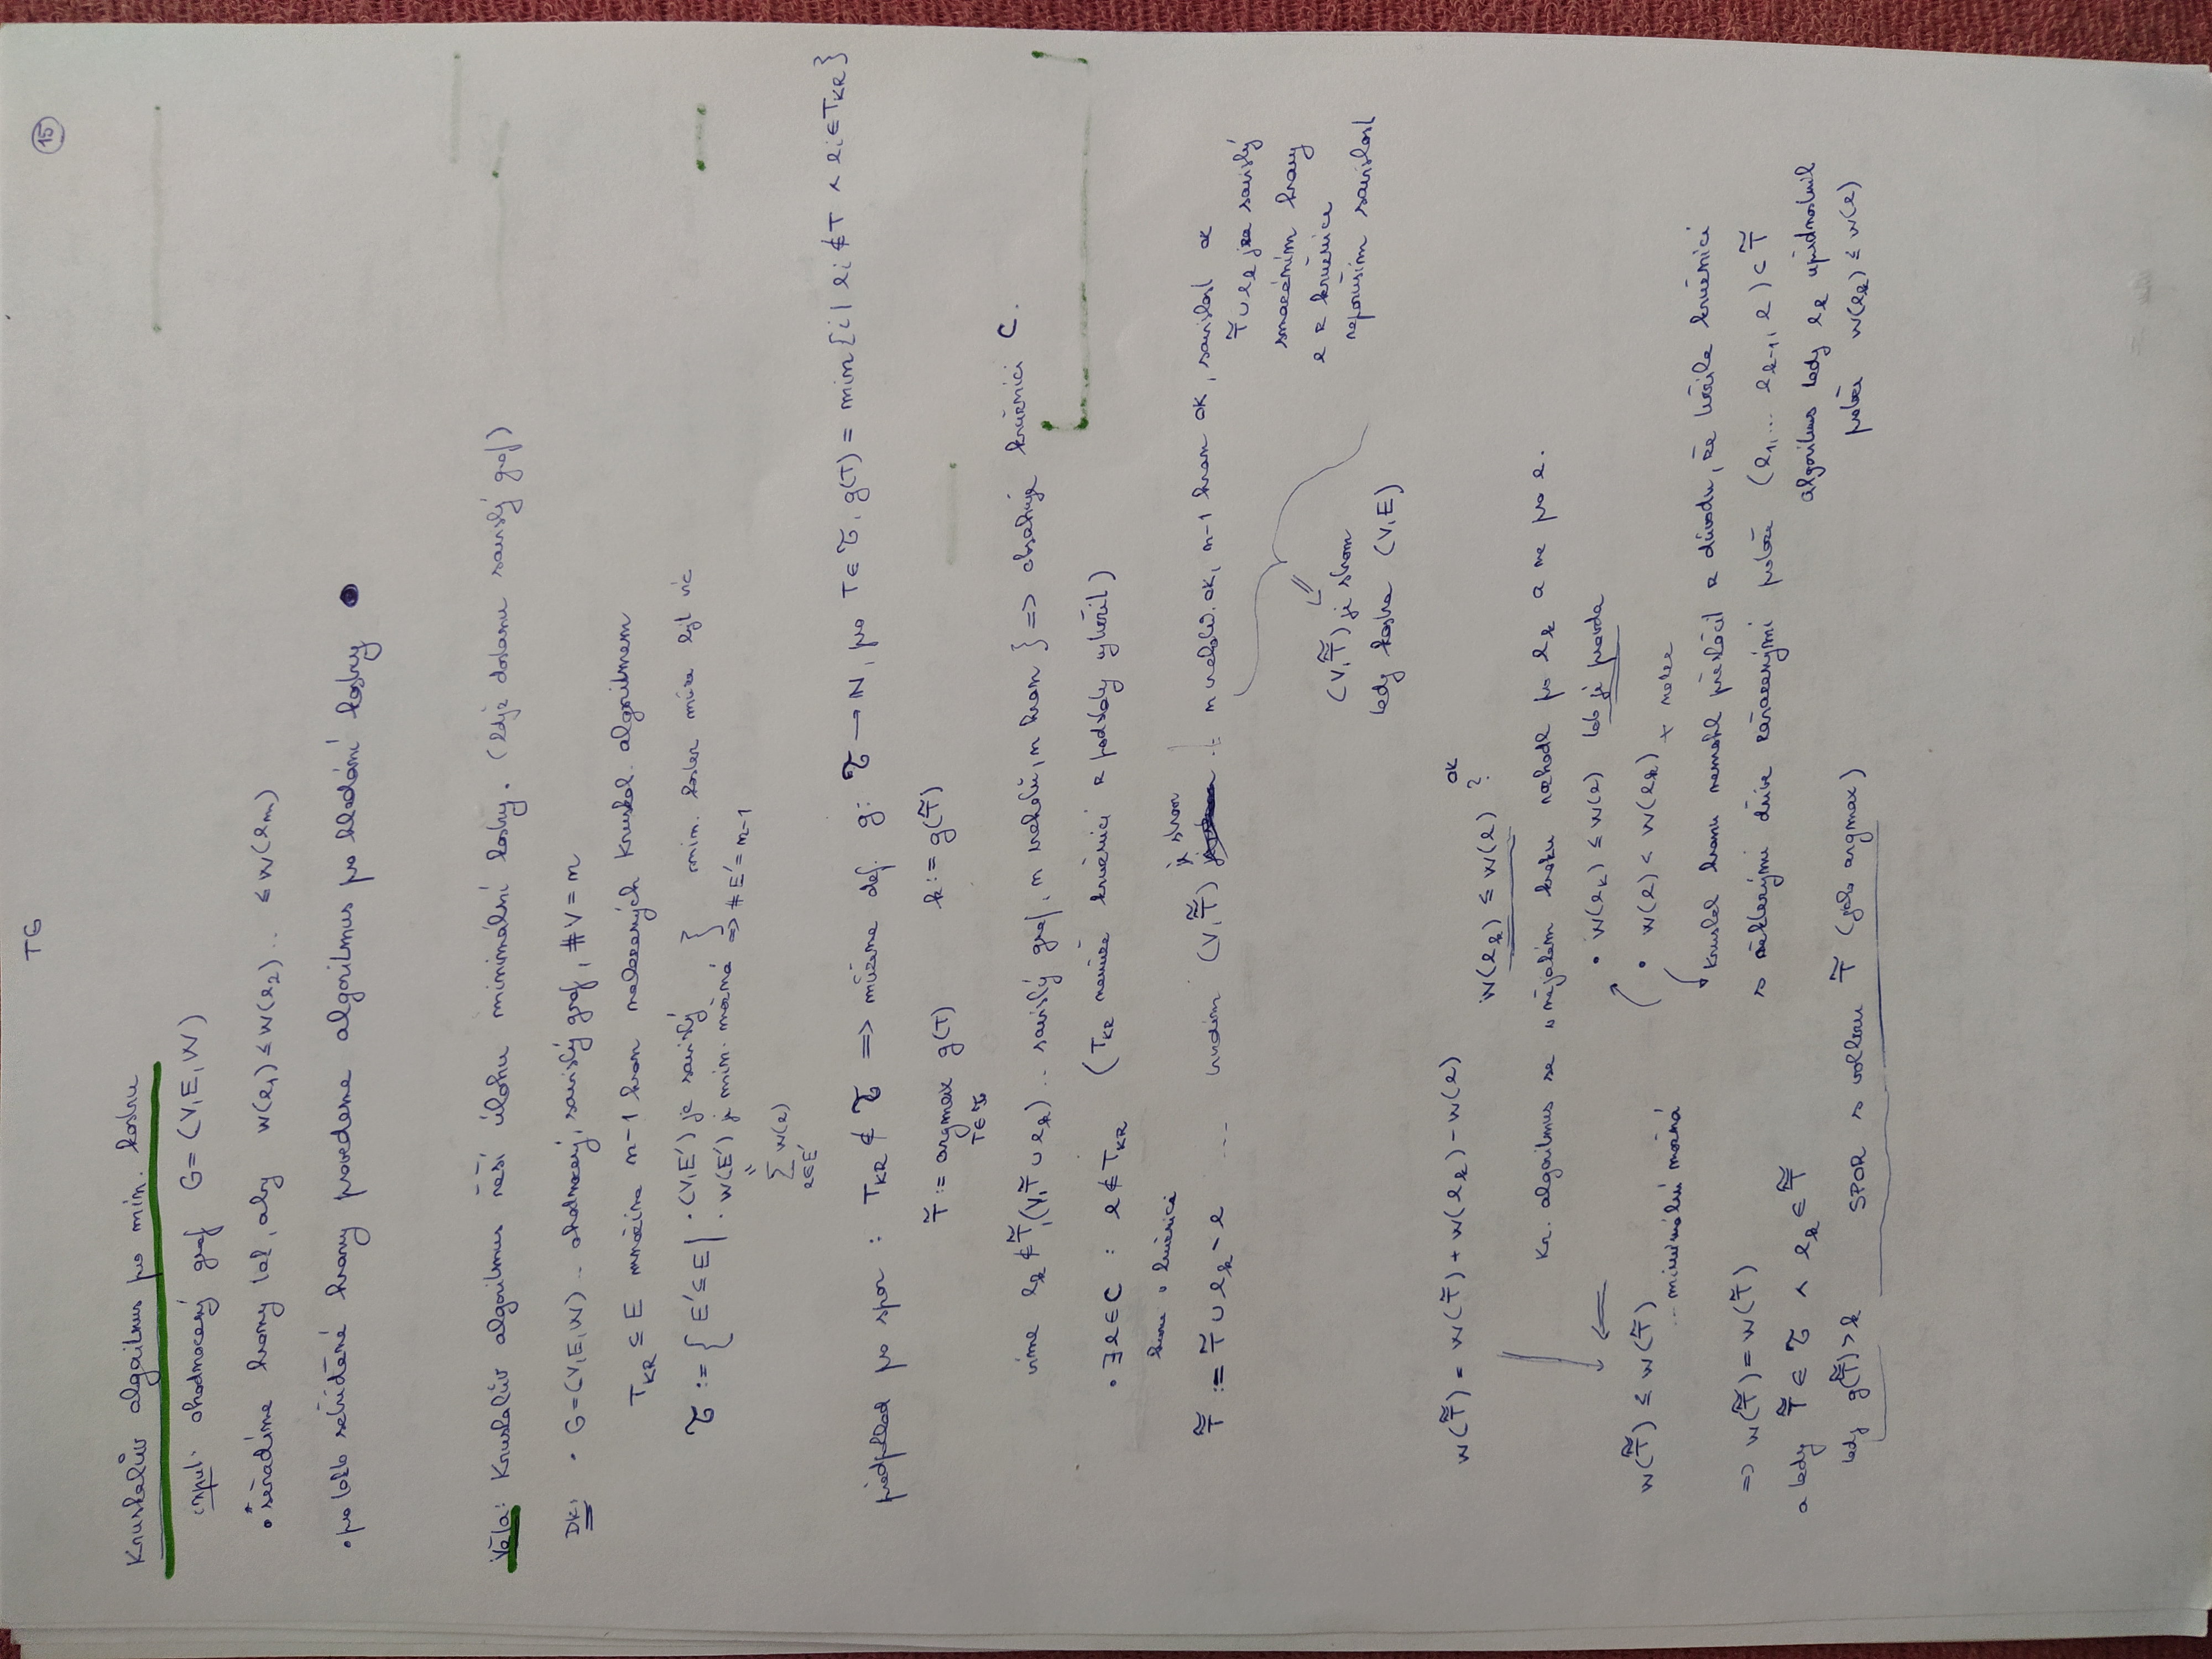 TG
15
Kruskalův algoritmus pro min. kostru
input: ohodnocený graf G=(V,E,W)
• seřadíme hrany tak, aby w(e₁) ≤ w(e₂) .. ≤ w(eₘ)
• pro takto setříděné hrany provedeme algoritmus pro hledání kostry
Věta: Kruskalův algoritmus řeší úlohu minimální kostry. (když dostanu souvislý graf)
Dk: • G=(V,E,W) .. ohodnocený, souvislý graf, #V = n
T_KR ⊆ E množina n-1 hran nalezených Kruskal. algoritmem
τ := { E' ⊆ E | • (V,E') je souvislý
min. koster může být víc
• w(E') je min. možná } => #E' = n-1
" Σ_{e∈E'} w(e)
předpoklad pro spor : T_KR ∉ τ => můžeme def. g: τ → N, pro T ∈ τ, g(T) = min{i | eᵢ ∉ T ∧ eᵢ ∈ T_KR}
T̃ := argmax_{T∈τ} g(T) k := g(T̃)
víme e_k ∉ T̃, (V, T̃ ∪ e_k) .. souvislý graf, n vrcholů, n hran } => obsahuje kružnici C.
• ∃ e ∈ C : e ∉ T_KR (T_KR nemůže kružnici z podstaty vytvořil)
hrana v kružnici
T̃̃ := T̃ ∪ e_k - e ... (V, T̃̃) je strom : n vrcholů ok, n-1 hran ok, souvislost ok
T̃ ∪ e_k je souvislý
smazáním hrany
e z kružnice
neporuším souvislost
(V, T̃̃) je strom
tedy kostra (V,E)
w(T̃̃) = w(T̃) + w(e_k) - w(e) w(e_k) ≤ w(e) ? ok
Kr. algoritmus se v nějakém kroku rozhodl pro e_k a ne pro e.
• w(e_k) ≤ w(e) to je pravda
• w(e) < w(e_k) + nelze
w(T̃̃) ≤ w(T̃)
.. minimální možná
Kruskal hranu nemohl přeskočil z důvodu, že tvořila kružnici
s některými dříve zařazenými protože (e₁, ... e_{k-1}, e) ⊂ T̃
algoritmus tedy e_k upřednostnil
protože w(e_k) ≤ w(e)
=> w(T̃̃) = w(T̃)
a tedy T̃̃ ∈ τ ∧ e_k ∈ T̃̃
tedy g(T̃̃) > k SPOR s volbou T̃ (jako argmax)